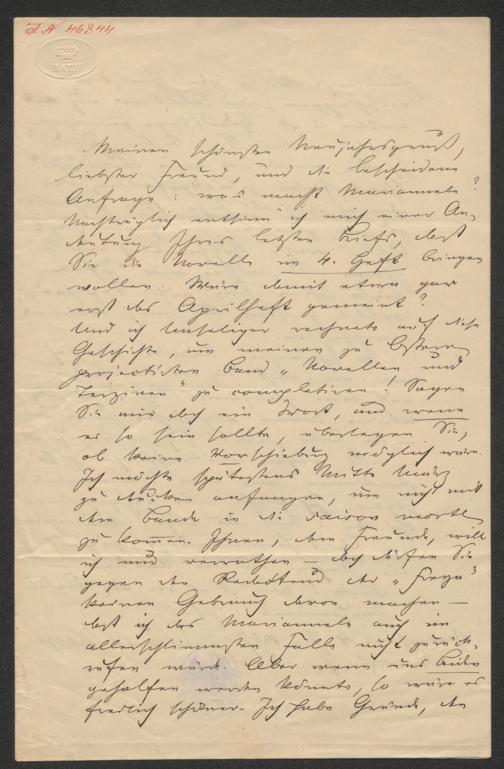 J.N. 46844
BATH
Meinen schönsten Neujahrsgruß,
liebster Freund, und die bescheidene
Anfrage: was macht Mariannele?
Nachträglich entsinn' ich mich einer An-
deutung Ihres letzten Briefs, daß
Sie die Novelle im 4. Heft bringen
wollen. Wäre damit etwa gar
erst das Aprilheft gemeint?
Und ich Unseliger rechnete auf diese
Geschichte, um meinen zu Ostern
projectirten Band „Novellen und
Terzinen" zu completiren! Sagen
Sie mir doch ein Wort, und wenn
es so sein sollte, überlegen Sie,
ob keine Vorschiebung möglich wäre.
Ich möchte spätestens Mitte März
zu drucken anfangen, um nicht mit
dem Bande in die saison morte
zu kommen. Ihnen, dem Freunde, will
ich nun verrathen – doch dürfen Sie
gegen den Redakteur der „Freya"
keinen Gebrauch davon machen –
daß ich das Mariannele auch im
allerschlimmsten Falle nicht zurück-
rufen würde. Aber wenn uns Beiden
geholfen werden könnte, so wäre es
freilich schöner. Ich habe Gründe, den